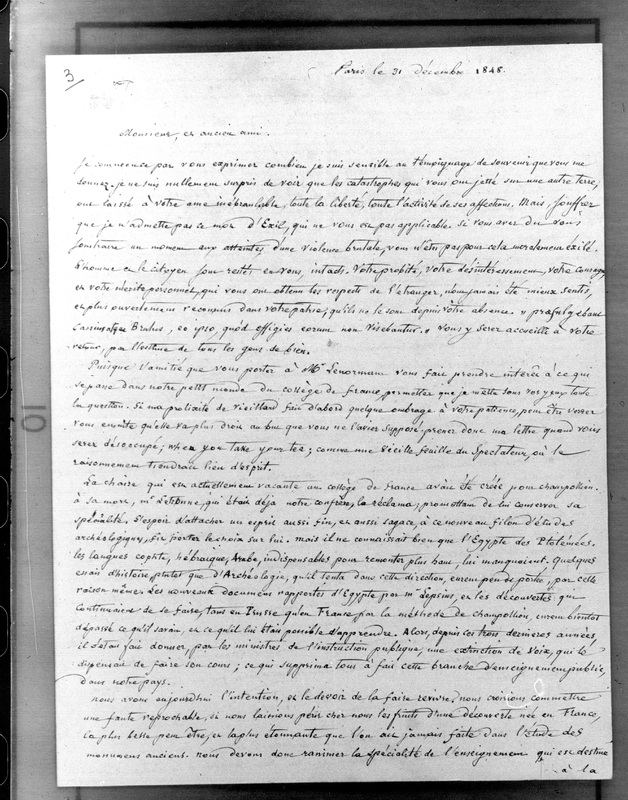 3
Paris le 31 décembre 1848.
Monsieur, et ancien ami.
Je commence par vous exprimer combien je suis sensible au témoignage de souvenir que vous me
donnez. je ne suis nullement surpris de voir que les catastrophes qui vous ont jetté sur une autre terre,
ont laissé à votre ame inébranlable, toute la liberté, toute l'activité de ses affections. Mais, souffrez
que je n'admette pas ce mot d'Exil, qui ne vous est pas applicable. Si vous avez du vous
soustraire un moment aux atteintes d'une violence brutale, vous n'etes pas pour cela moralement exilé.
L'homme et le citoyen sont restés en vous, intacts. Votre probité, votre désintéressement, votre courage,
et votre mérite personnel, qui vous ont obtenu les respects de l'étranger, n'ont jamais été mieux sentis,
et plus ouvertement reconnus dans votre patrie, qu'ils ne le sont depuis votre absence. « præfulgebant
Cassius atque Brutus, eo ipso, quod effigies eorum non visebantur. » Vous y serez accueilli à votre
retour, par l'estime de tous les gens de bien.
Puisque l'amitié que vous portez à Mr Lenormant vous fait prendre intérêt à ce qui
se passe dans notre petit monde du collège de france, permettez que je mette sous vos yeux toute
la question. Si ma prolixité de vieillard fait d'abord quelque ombrage à votre patience, peut être verrez
vous ensuite qu'elle va plus droit au but que vous ne l'aviez supposé. prenez donc ma lettre quand vous
serez désoccupé; when you take your tea; comme une vieille feuille du Spectateur, où le
raisonnement tiendrait lieu d'esprit.
La chaire qui est actuellement vacante au collège de france avait été créée pour champollion.
à sa mort, mr Letronne, qui était déja notre confrère, la réclama; promettant de lui conserver sa
spécialité. L'espoir d'attacher un esprit aussi fin, et aussi sagace, à ce nouveau filon d'études
archéologiques, fit porter le choix sur lui. mais il ne connaissait bien que l'Egypte des Ptolémées.
les langues cophte, hébraïque, Arabe, indispensables pour remonter plus haut, lui manquaient. Quelques
essais d'histoire, plutot que d'Archéologie, qu'il tenta dans cette direction, eurent peu de portée, par cette
raison même. Les nouveaux documens rapportés d'Egypte par mr Lepsius, et les découvertes qui
continuaient de se faire, tant en Prusse qu'en France par la méthode de champollion, eurent bientot
dépassé ce qu'il savait, et ce qu'il lui était possible d'apprendre. Alors, depuis ces trois dernières années,
il s'était fait donner, par les ministres de l'instruction publique, une extinction de voix, qui le
dispensait de faire son cours; ce qui supprima tout à fait cette branche d'enseignement public,
dans notre pays.
nous avons aujourd'hui l'intention, et le devoir de la faire revivre. nous croirions commettre
une faute reprochable, si nous laissions périr chez nous les fruits d'une découverte née en France,
la plus belle peut être, et la plus étonnante que l'on ait jamais faite dans l'étude des
monumens anciens. nous devons donc ranimer la spécialité de l'enseignement qui est destiné
à la
10